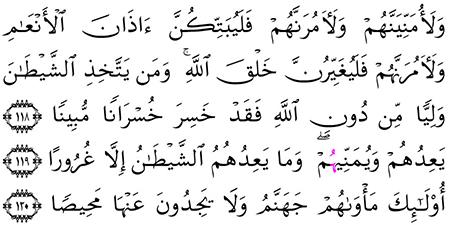 وَلَأُمَنِّيَنَّهُمْ وَلَـَٔامُرَنَّهُمْ فَلَيُبَتِّكُنَّ ءَاذَانَ ٱلْأَنْعَـٰمِ
وَلَـَٔامُرَنَّهُمْ فَلَيُغَيِّرُنَّ خَلْقَ ٱللَّهِ ۚ وَمَن يَتَّخِذِ ٱلشَّيْطَـٰنَ
وَلِيًّا مِّن دُونِ ٱللَّهِ فَقَدْ خَسِرَ خُسْرَانًا مُّبِينًا ١١٨
يَعِدُهُمْ وَيُمَنِّيهِمْ ۖ وَمَا يَعِدُهُمُ ٱلشَّيْطَـٰنُ إِلَّا غُرُورًا ١١٩
أُو۟لَـٰٓئِكَ مَأْوَىٰهُمْ جَهَنَّمُ وَلَا يَجِدُونَ عَنْهَا مَحِيصًا ١٢٠